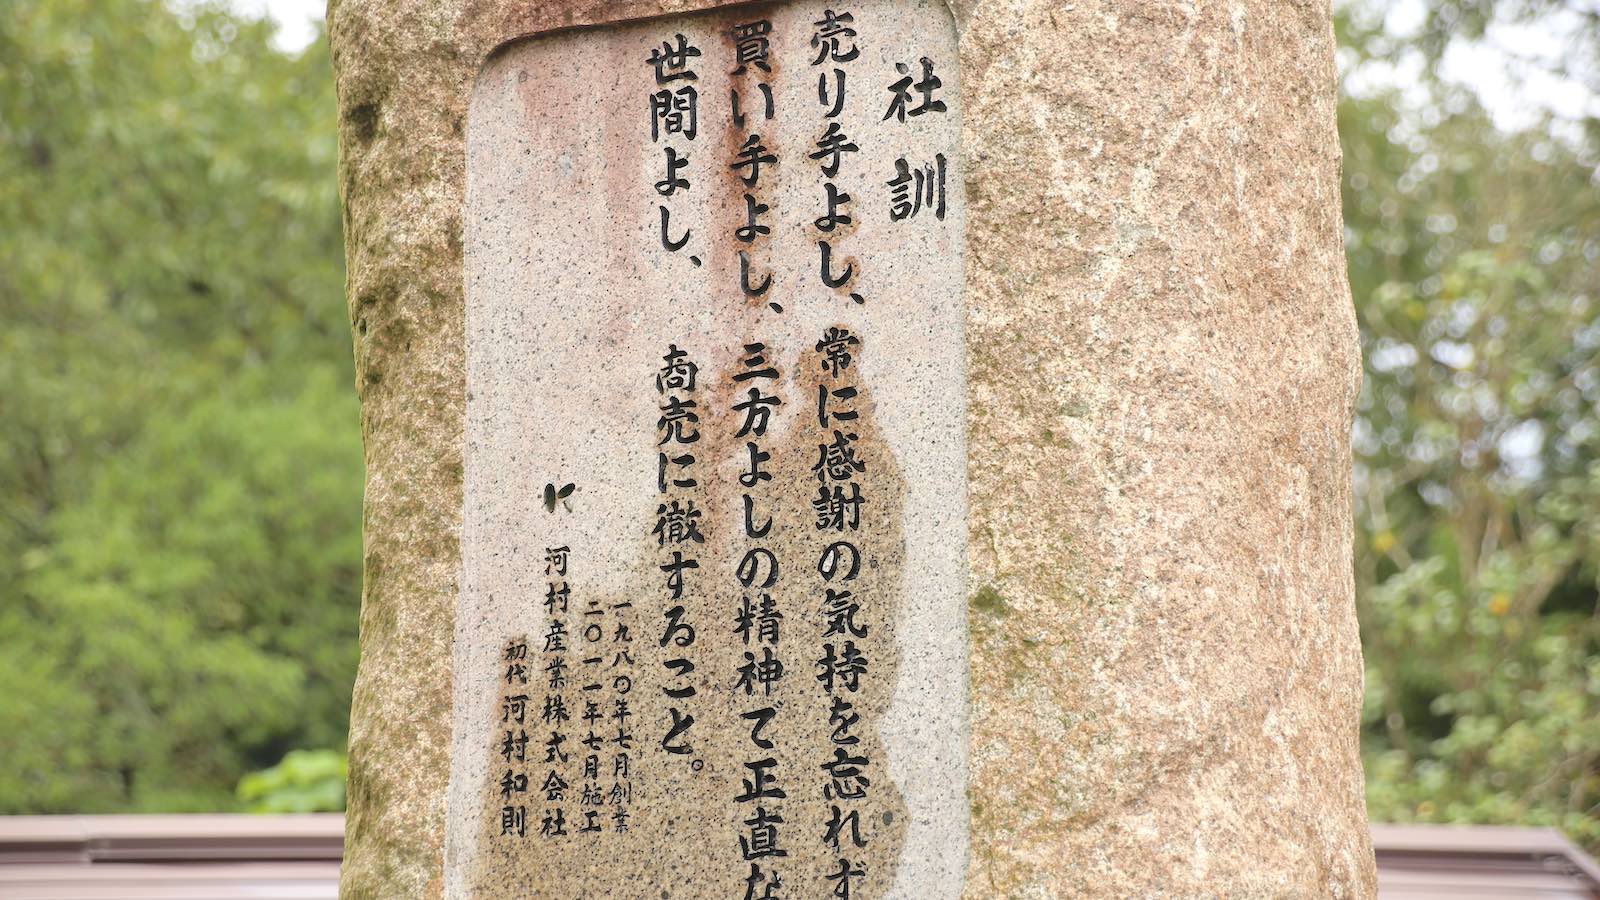 社訓
売り手よし、常に感謝の気持を忘れず
買い手よし、三方よしの精神で正直な
世間よし、商売に徹すること。
一九八〇年七月創業
二〇一一年七月施工
河村産業株式会社
初代 河村和則